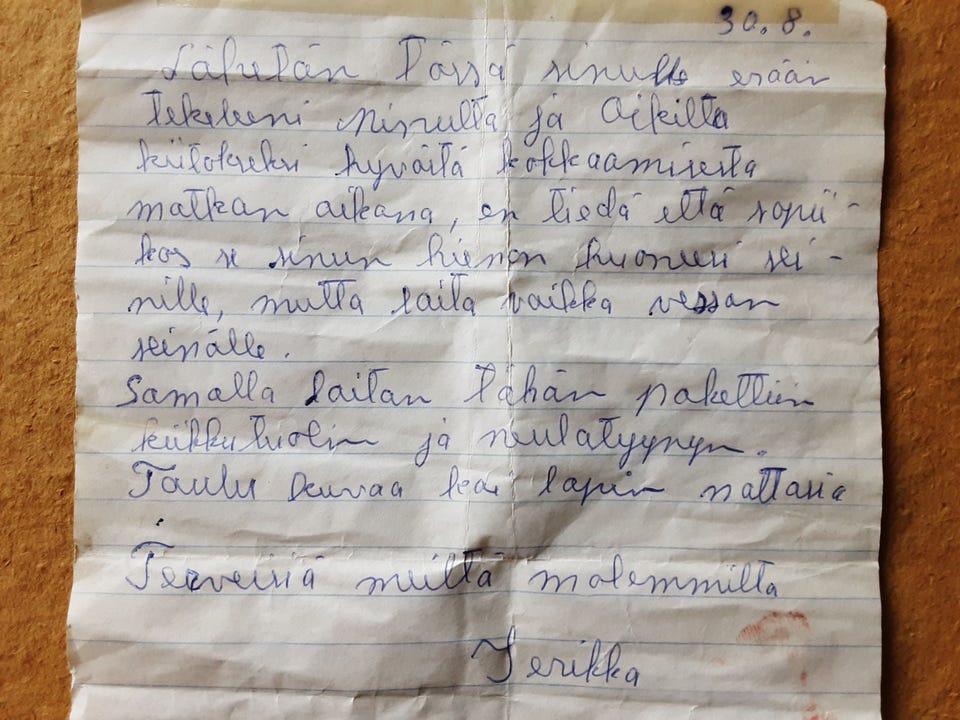 30.8.
Lähetän tässä sinulle erään
tekeleeni sinulta ja Aikilta
kiitokseksi hyvästä kokkaamisesta
matkan aikana, en tiedä että sopii-
kos se sinun hienon huoneesi sei-
nille, mutta laita vaikka vessan
seinälle.
Samalla laitan tähän pakettiin
kiikkutuolin ja neulatyynyn.
Taulu kuvaa lapin nattasia
Terveisiä meiltä molemmilta